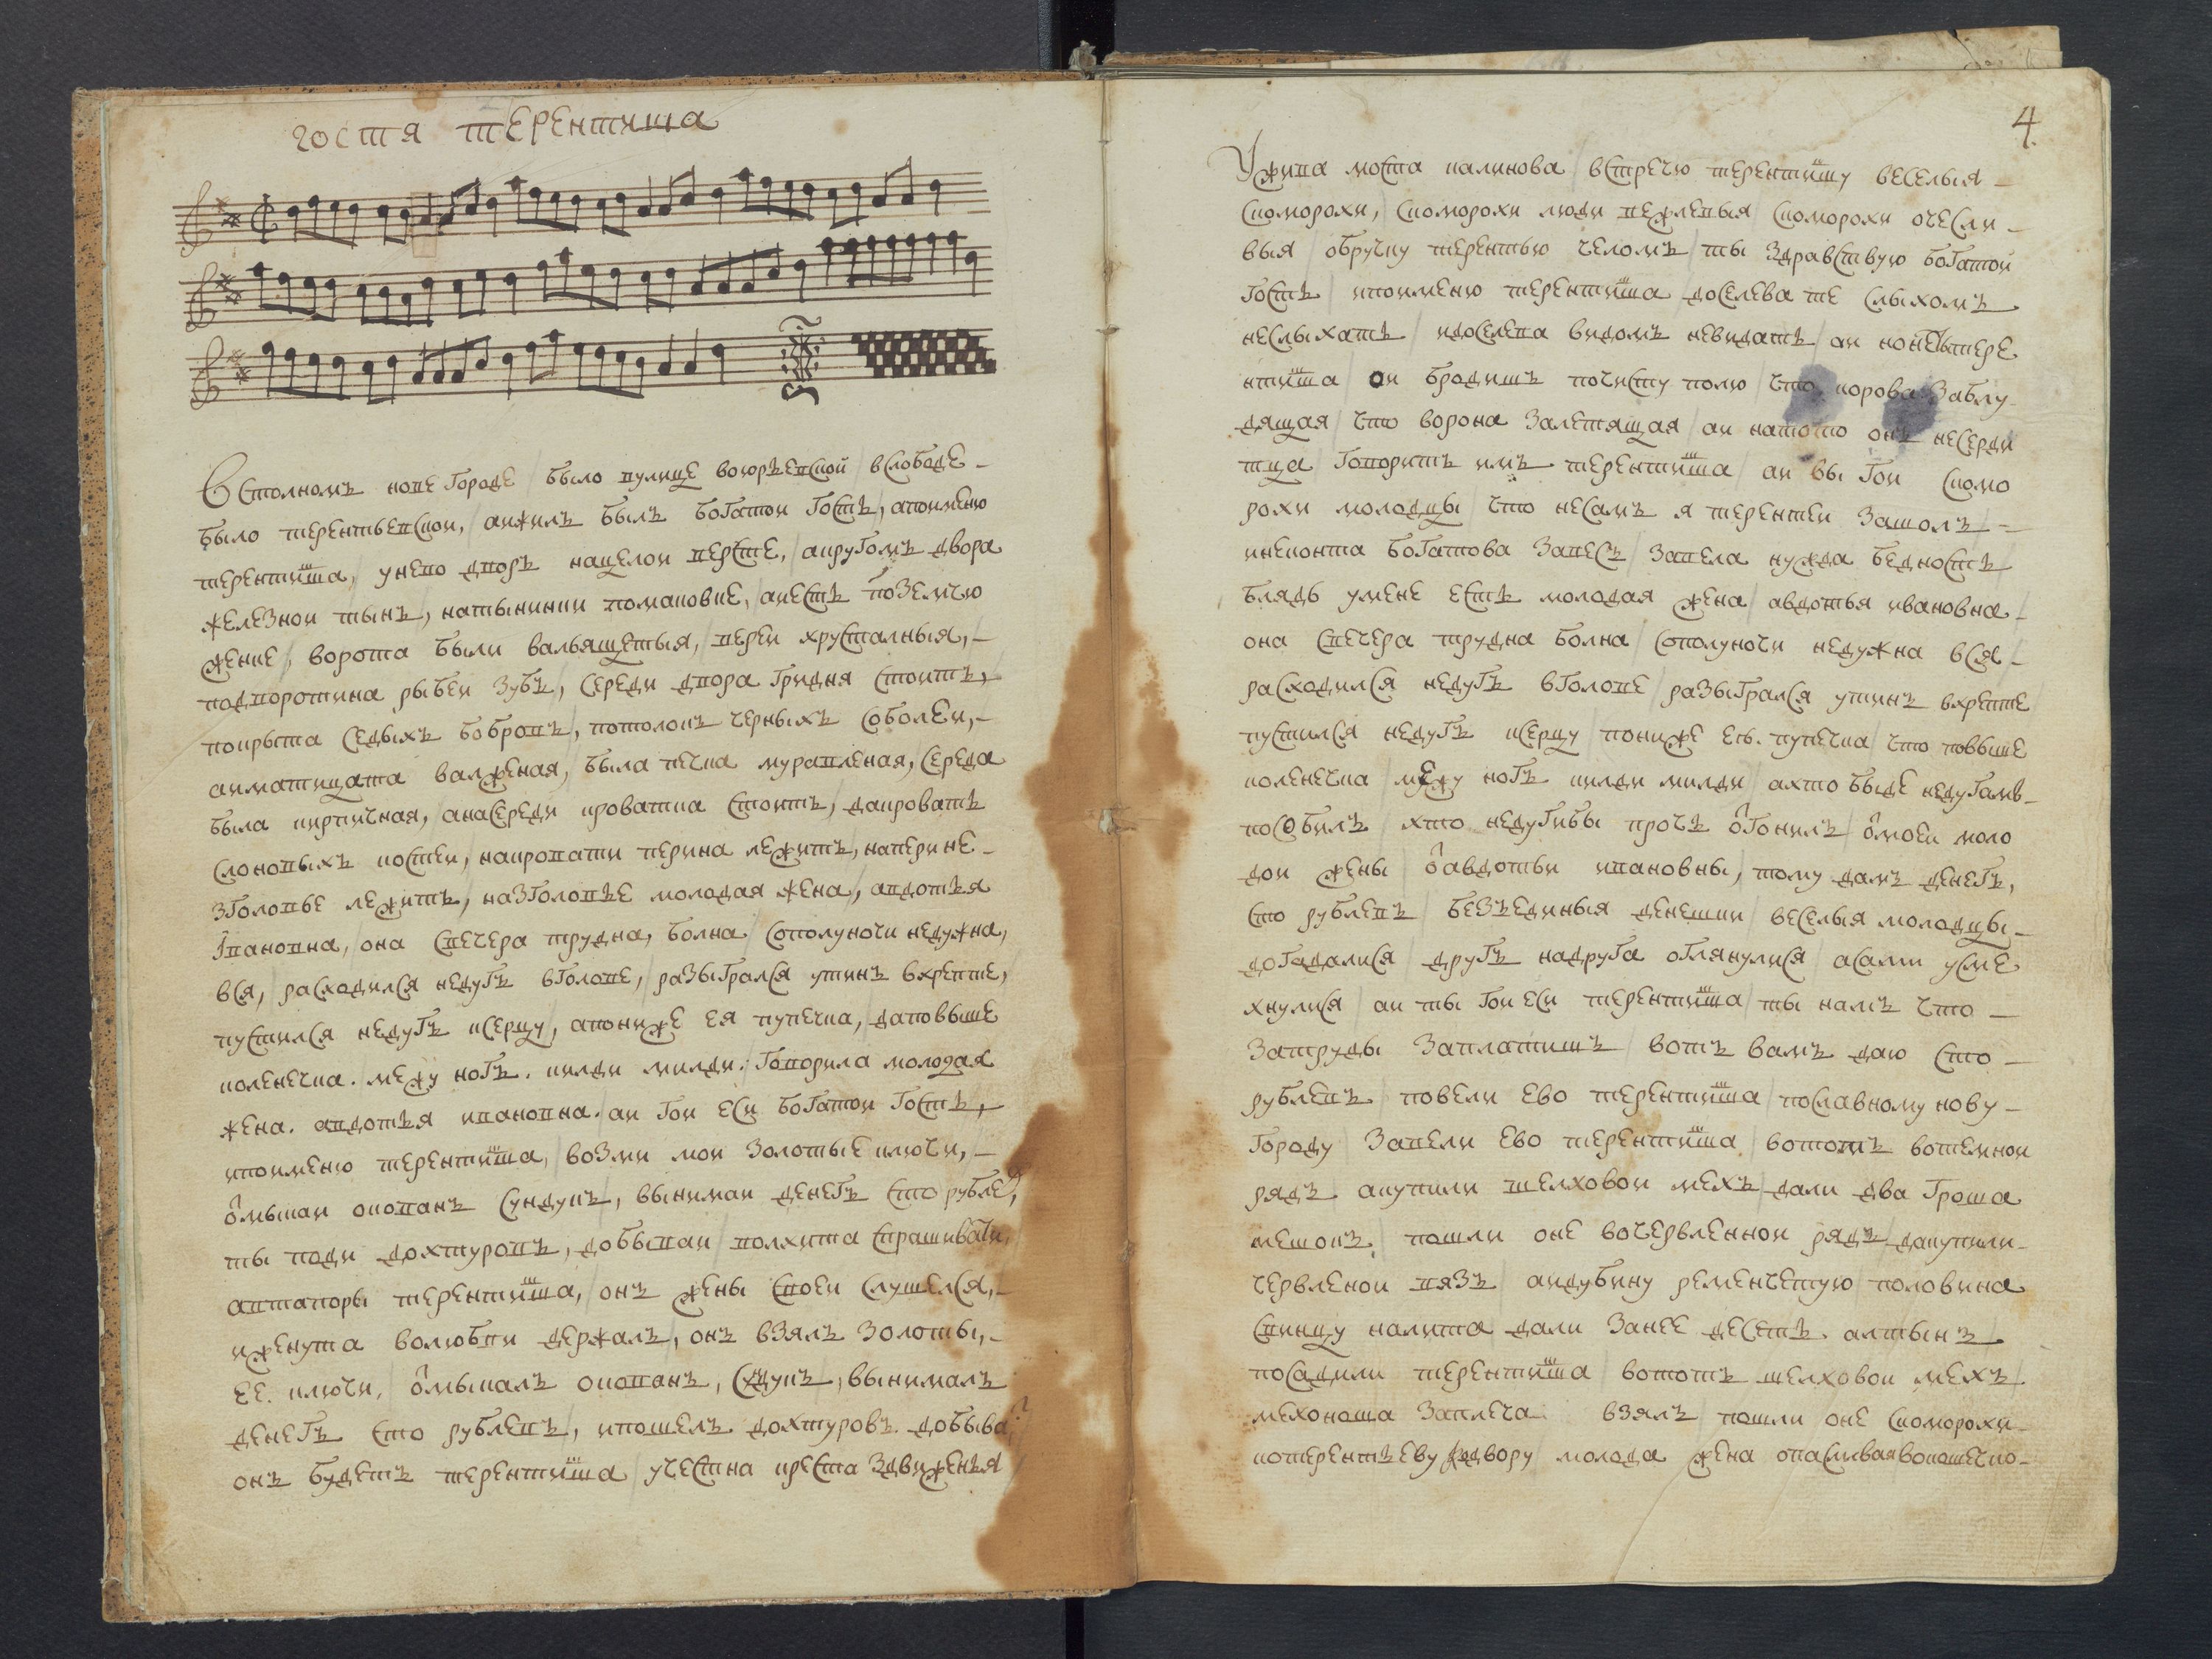 гостя терентища
4
В столномъ нове городе / было вулице воюрьевской / вслободе
было терентьевской, / аижилъ былъ богатои гость, / апоимению
терентиша, / унево дворъ нацелои версте, / акругомъ двора
железнои тынъ, / натынинки помаковке, / аиесть поземчю
женке, / ворота были вальящетыя, / вереи хрусталныя,
подворотина рыбеи зубъ, / середи двора гридня стоитъ,
покрыта седыхъ бобровъ, / потолокъ черныхъ соболеи,
аиматицата валженая, / была печка муравленая, / середа
была кирпичная, / анасереди кроватка стоитъ, / дакровать
слоновыхъ костеи, / накровати перина лежитъ, / наперине
зголовье лежитъ, / назголовье молодая жена, / авдотья
Iвановна, / она свечера трудна, болна / сополуночи недужна,
вся, / расходился недугъ вголове, / разыгрался утинъ вхрепте,
пустился недугъ ксерцу, / апониже ея пупечка, / даповыше
коленечка. межу ногъ. килди милди. / говорила молодая
жена. авдотья ивановна. / аи гои еси богатои гость,
ипоименю терентиша, / возми мои золотые ключи,
омыкаи окованъ сундукъ, / вынимаи денегъ сто рублев,
ты поди дохтуровъ, / добываи / волхита спрашивати,
автапоры терентиша, / онъ жены своеи слушелся,
ижену та волюбви держалъ, / онъ взялъ золоты,
ее. ключи, / омыкалъ окованъ, сундукъ, / вынималъ
денегъ сто рублевъ, / ипошелъ дохтуровъ. добыва
онъ будетъ терентиша / учестна креста здвиженья
Ужива моста калинова / встречю терентишу веселыя
скоморохи, / скоморохи люди вежлевыя / скоморохи очесли
выя / обручку терентью челомъ / ты здравствую богатои
гость / ипоименю терентиша / доселева те слыхомъ
неслыхать / идоселева видомъ невидать / аи ноне тере
нтиша / аи бродишъ почисту полю / что корова заблу
дящая / что ворона залетящая / аи натото онъ несерди
тца / говоритъ имъ терентиша / аи вы гои скомо
рохи молодцы / что несамъ я терентеи зашолъ
инеконта богатова завесь / завела нужда бедность
блядь умене есть молодая жена / авдотья ивановна
она свечера трудна болна / сополуночи недужна вся
расходился недугъ вголове / разыгрался утинъ вхрепте
пустился недугъ ксерцу / пониже ее. пупечка / что повыше
коленечка / межу ногъ килди милди / ахто быде недугамъ
пособилъ / хто недугибы прочь огонилъ / омоеи моло
дои жены / оавдотьи ивановны, / тому дамъ денегъ,
сто рублевъ / безъединыя денешки / веселыя молодцы
догадалися / другъ надруга оглянулися / асами усме
хнулися / аи ты гои еси терентиша / ты намъ что
затруды заплатишъ / вотъ вамъ даю сто
рублевъ / повели ево терентиша / пославному нову
городу / завели ево терентиша / вототъ вотемнои
рядъ / акупили шелховои мехъ / дали два гроша
мешокъ / пошли оне вочервленнои рядъ / дакупили
червленои вязъ / аидубину ременчетую / половина
свинцу налита / дали занее десеть. алтынъ
посадили терентиша / вототъ шелховои мехъ
мехоноша заплеча взялъ / пошли оне скоморохи
котерентьеву двору / молода жена опасливая вокошечко